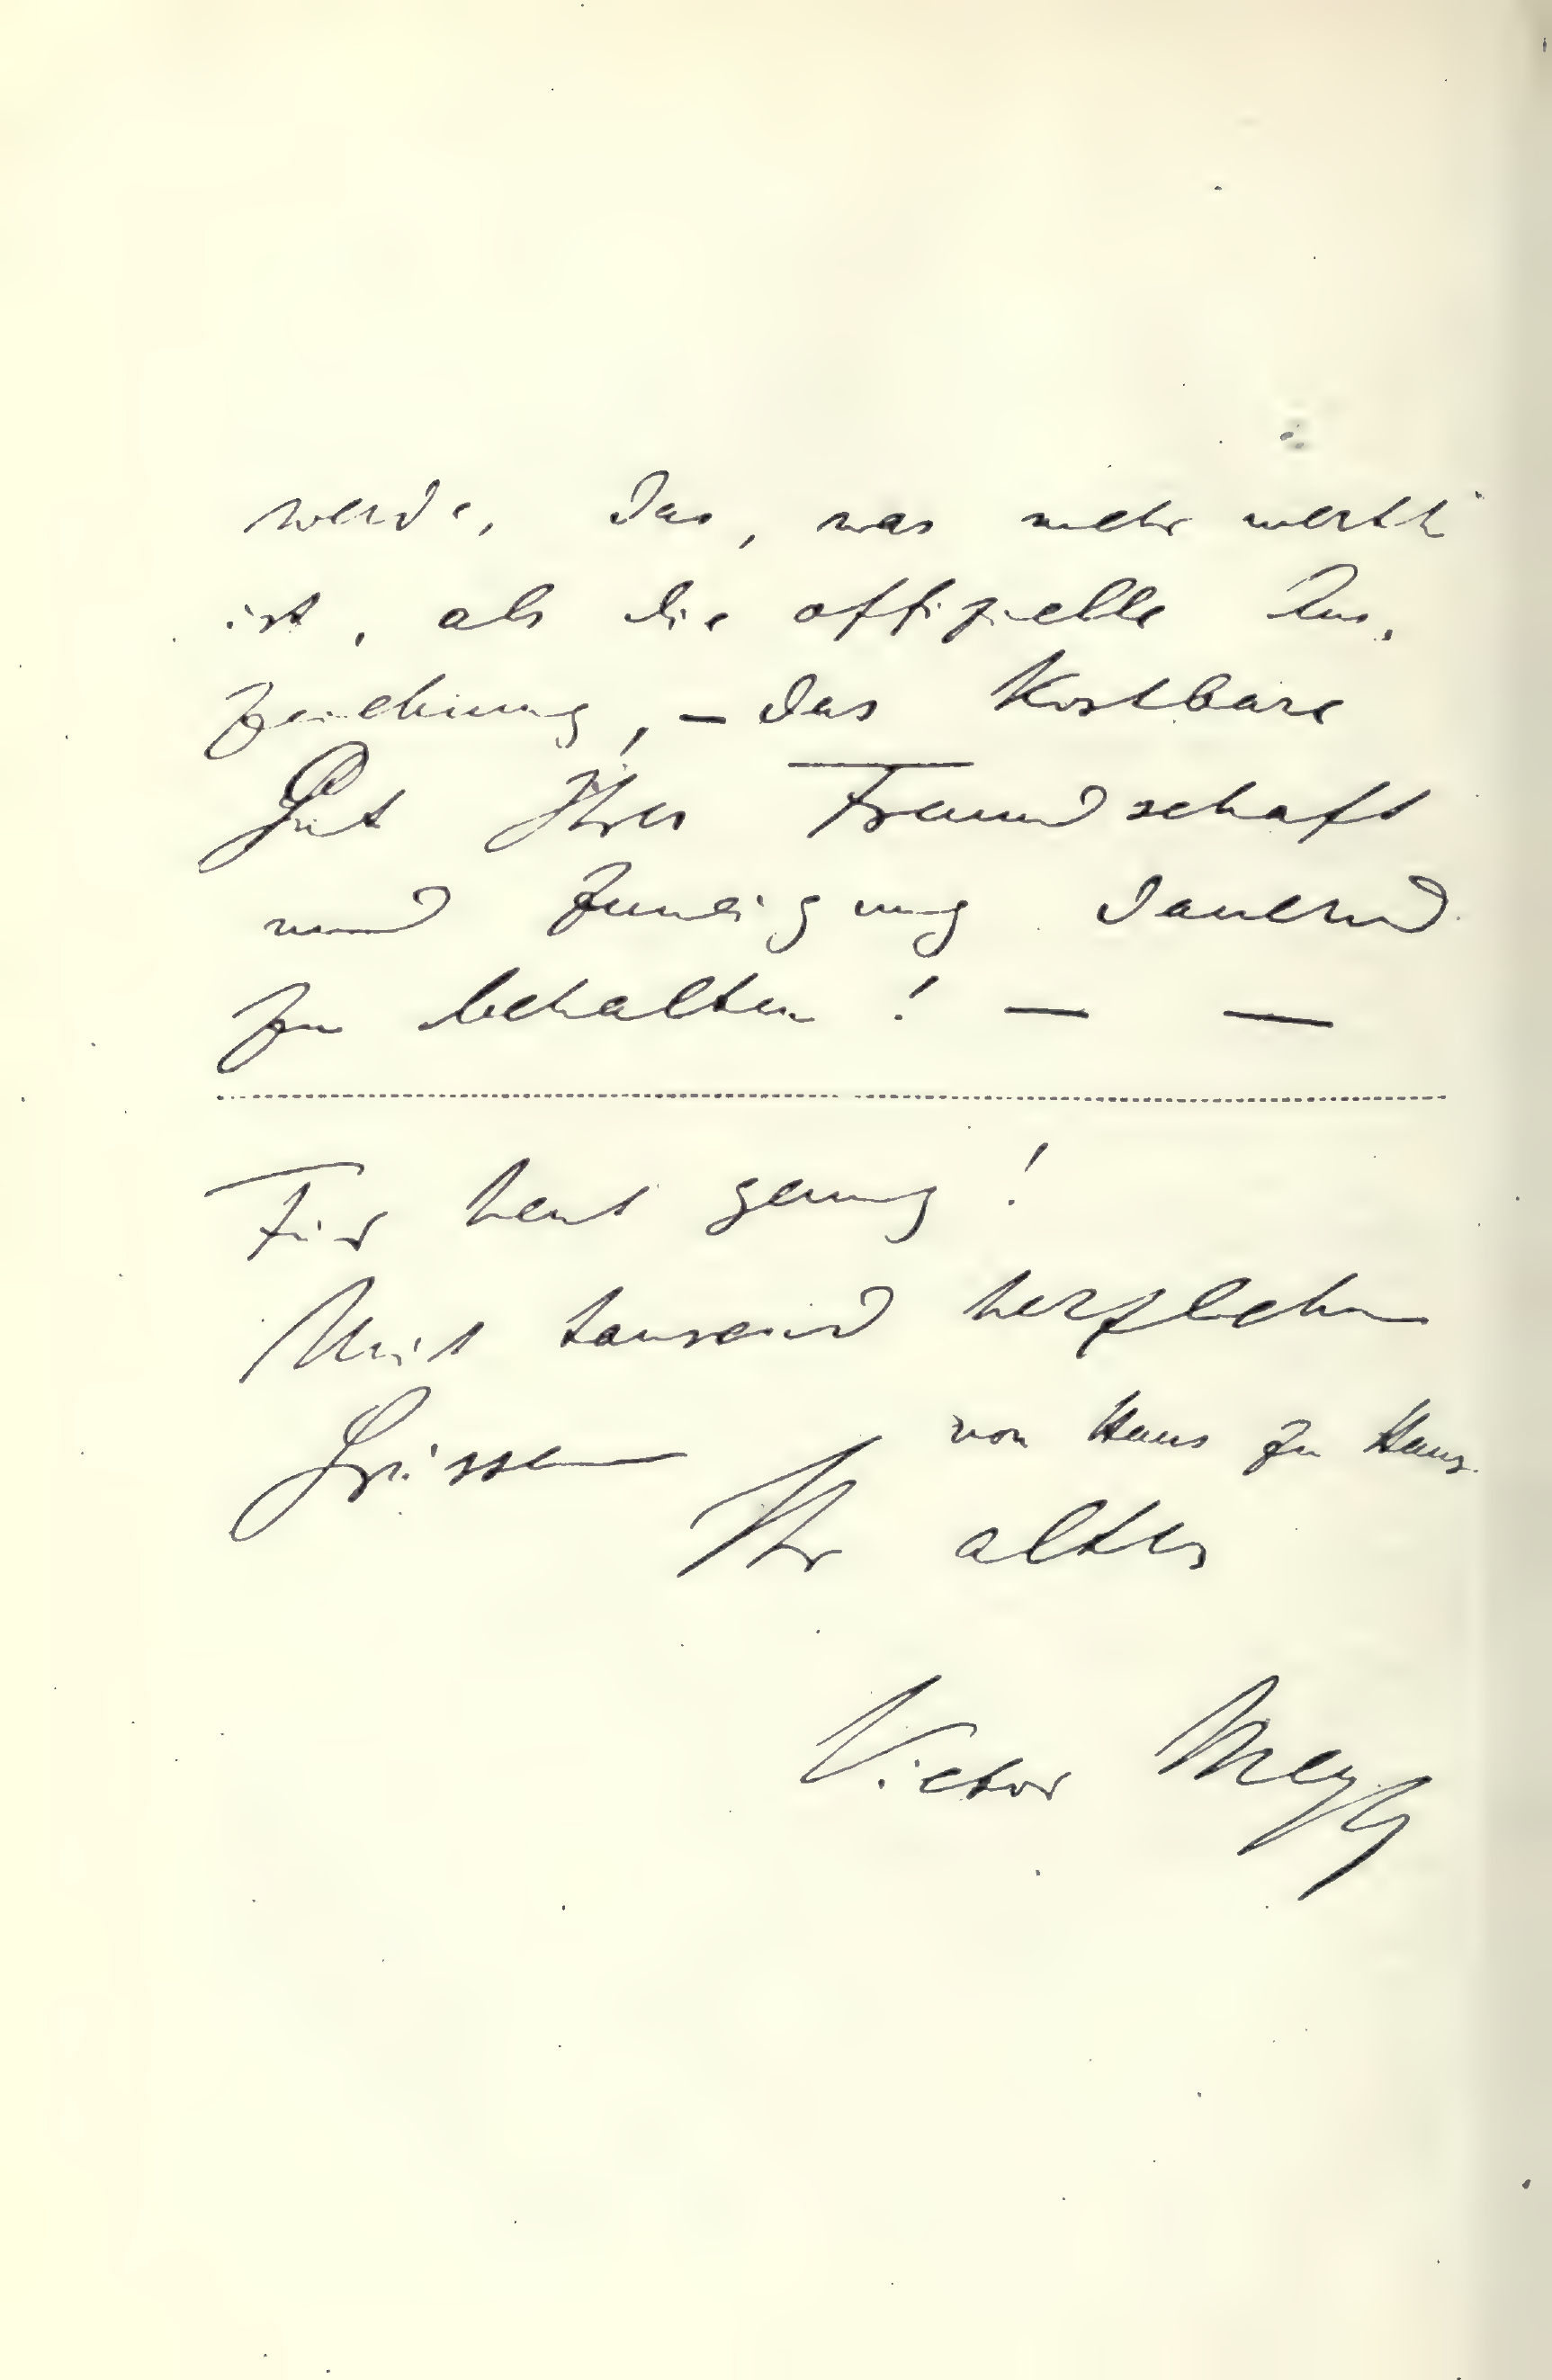 werde, das, was mehr werth
ist, als die offizielle Aus-
zeichnung, – das kostbare
Gut Ihrer Freundschaft
und Zuneigung dauernd
zu behalten! — —
Für heut genug!
Mit tausend herzlichen
Grüssen von Haus zu Haus
Ihr alter
Victor Meyer